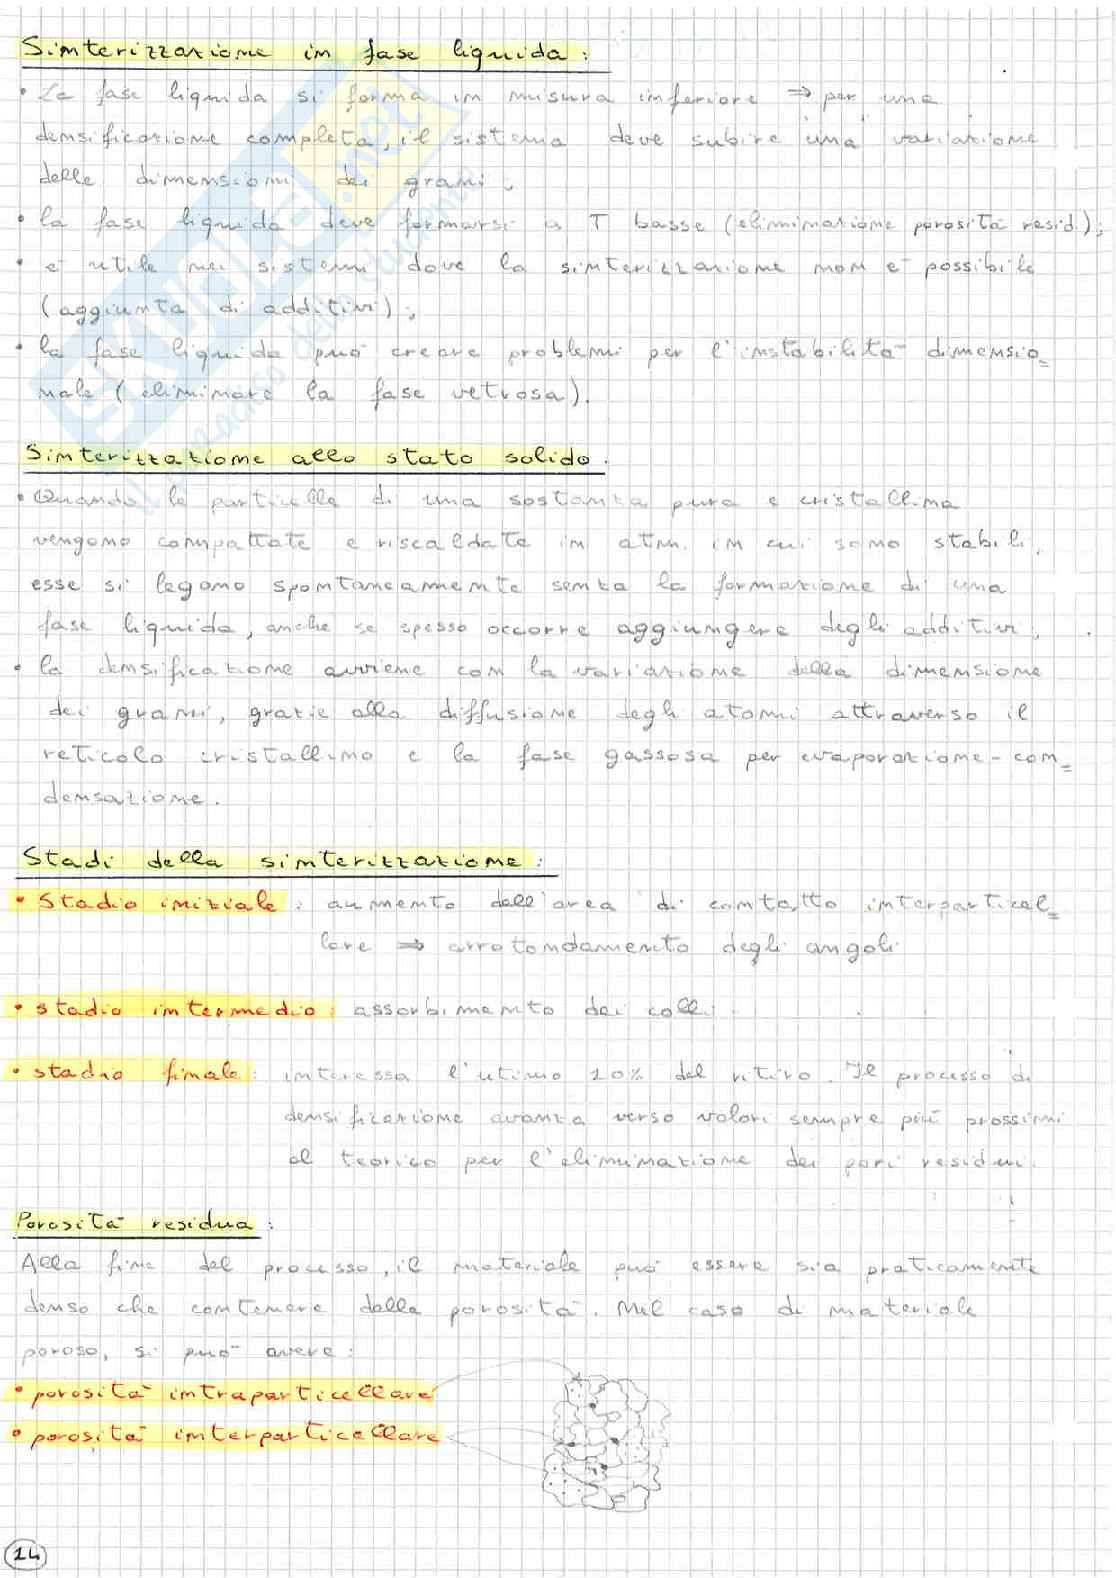 Sinterizzazione in fase liquida:
• La fase liquida si forma in misura inferiore ⇒ per una
densificazione completa, il sistema deve subire una variazione
delle dimensioni dei grani;
• la fase liquida deve formarsi a T basse (eliminazione porosità resid.);
• è utile nei sistemi dove la sinterizzazione non è possibile
(aggiunta di additivi);
• la fase liquida può creare problemi per l'instabilità dimensio=
nale (eliminare la fase vetrosa).
SKUOLA.net
il paradiso dello studente
Sinterizzazione allo stato solido.
• Quando le particelle di una sostanza pura e cristallina
vengono compattate e riscaldate in atm. in cui sono stabili,
esse si legano spontaneamente senza la formazione di una
fase liquida, anche se spesso occorre aggiungere degli additivi;
• la densificazione avviene con la variazione della dimensione
dei grani, grazie alla diffusione degli atomi attraverso il
reticolo cristallino e la fase gassosa per evaporazione-con=
densazione.
Stadi della sinterizzazione:
• Stadio iniziale: aumento dell'area di contatto interparticel=
lare ⇒ arrotondamento degli angoli
• stadio intermedio: assorbimento dei colli.
• stadio finale: interessa l'utimo 10% del ritiro. Il processo di
densificazione avanza verso valori sempre più prossimi
al teorico per l'eliminazione dei pori residui.
Porosità residua:
Alla fine del processo, il materiale può essere sia praticamente
denso che contenere della porosità. Nel caso di materiale
poroso, si può avere:
• porosità intraparticellare
• porosità interparticellare
14